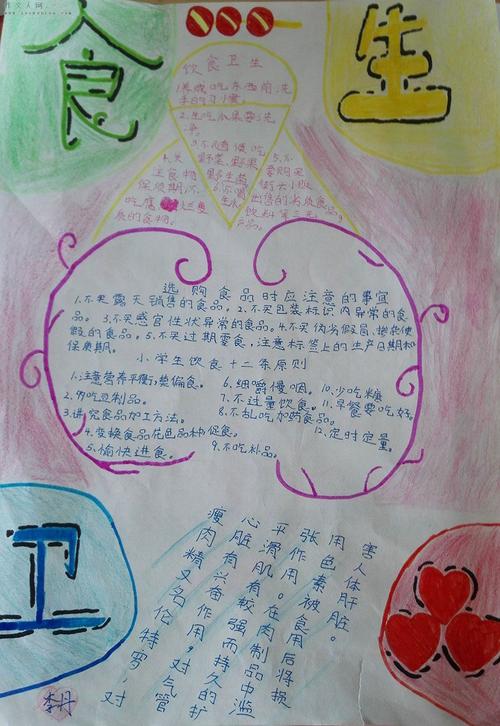 作文人网
食
生
饮食卫生
1.养成吃东西前洗
手的习惯。
2.生吃瓜果要洗
净。
3.不随便吃
野菜、野果
4.关
注食物
保质期,不
吃腐
质的食物。
5.不
要购买
街头小贩
出售的劣质食品,
饮料
6.不喝
生水
选购食品时应注意的事宜
1.不买露天销售的食品。2.不买包装标识内异常的食
品。3.不买感官性状异常的食品。4.不买伪劣假冒、掺杂使
假的食品。5.不买过期零食,注意标签上的生产日期和
保质期。
小学生饮食十二条原则
1.注意营养平衡,禁偏食。
2.常吃豆制品。
3.讲究食品加工方法。
4.变换食品花色品种促食。
5.愉快进食。
6.细嚼慢咽。
7.不过量饮食。
8.不乱吃加药食品。
9.不吃补品。
10.少吃糖
11.早餐要吃好。
12.定时定量。
瘦肉精又名伦特罗,对
心脏有兴奋作用,对气管
平滑肌有较强而持久的扩
张作用。在肉制品中滥
用色素被食用后将损
害人体肝脏。
卫
李丹